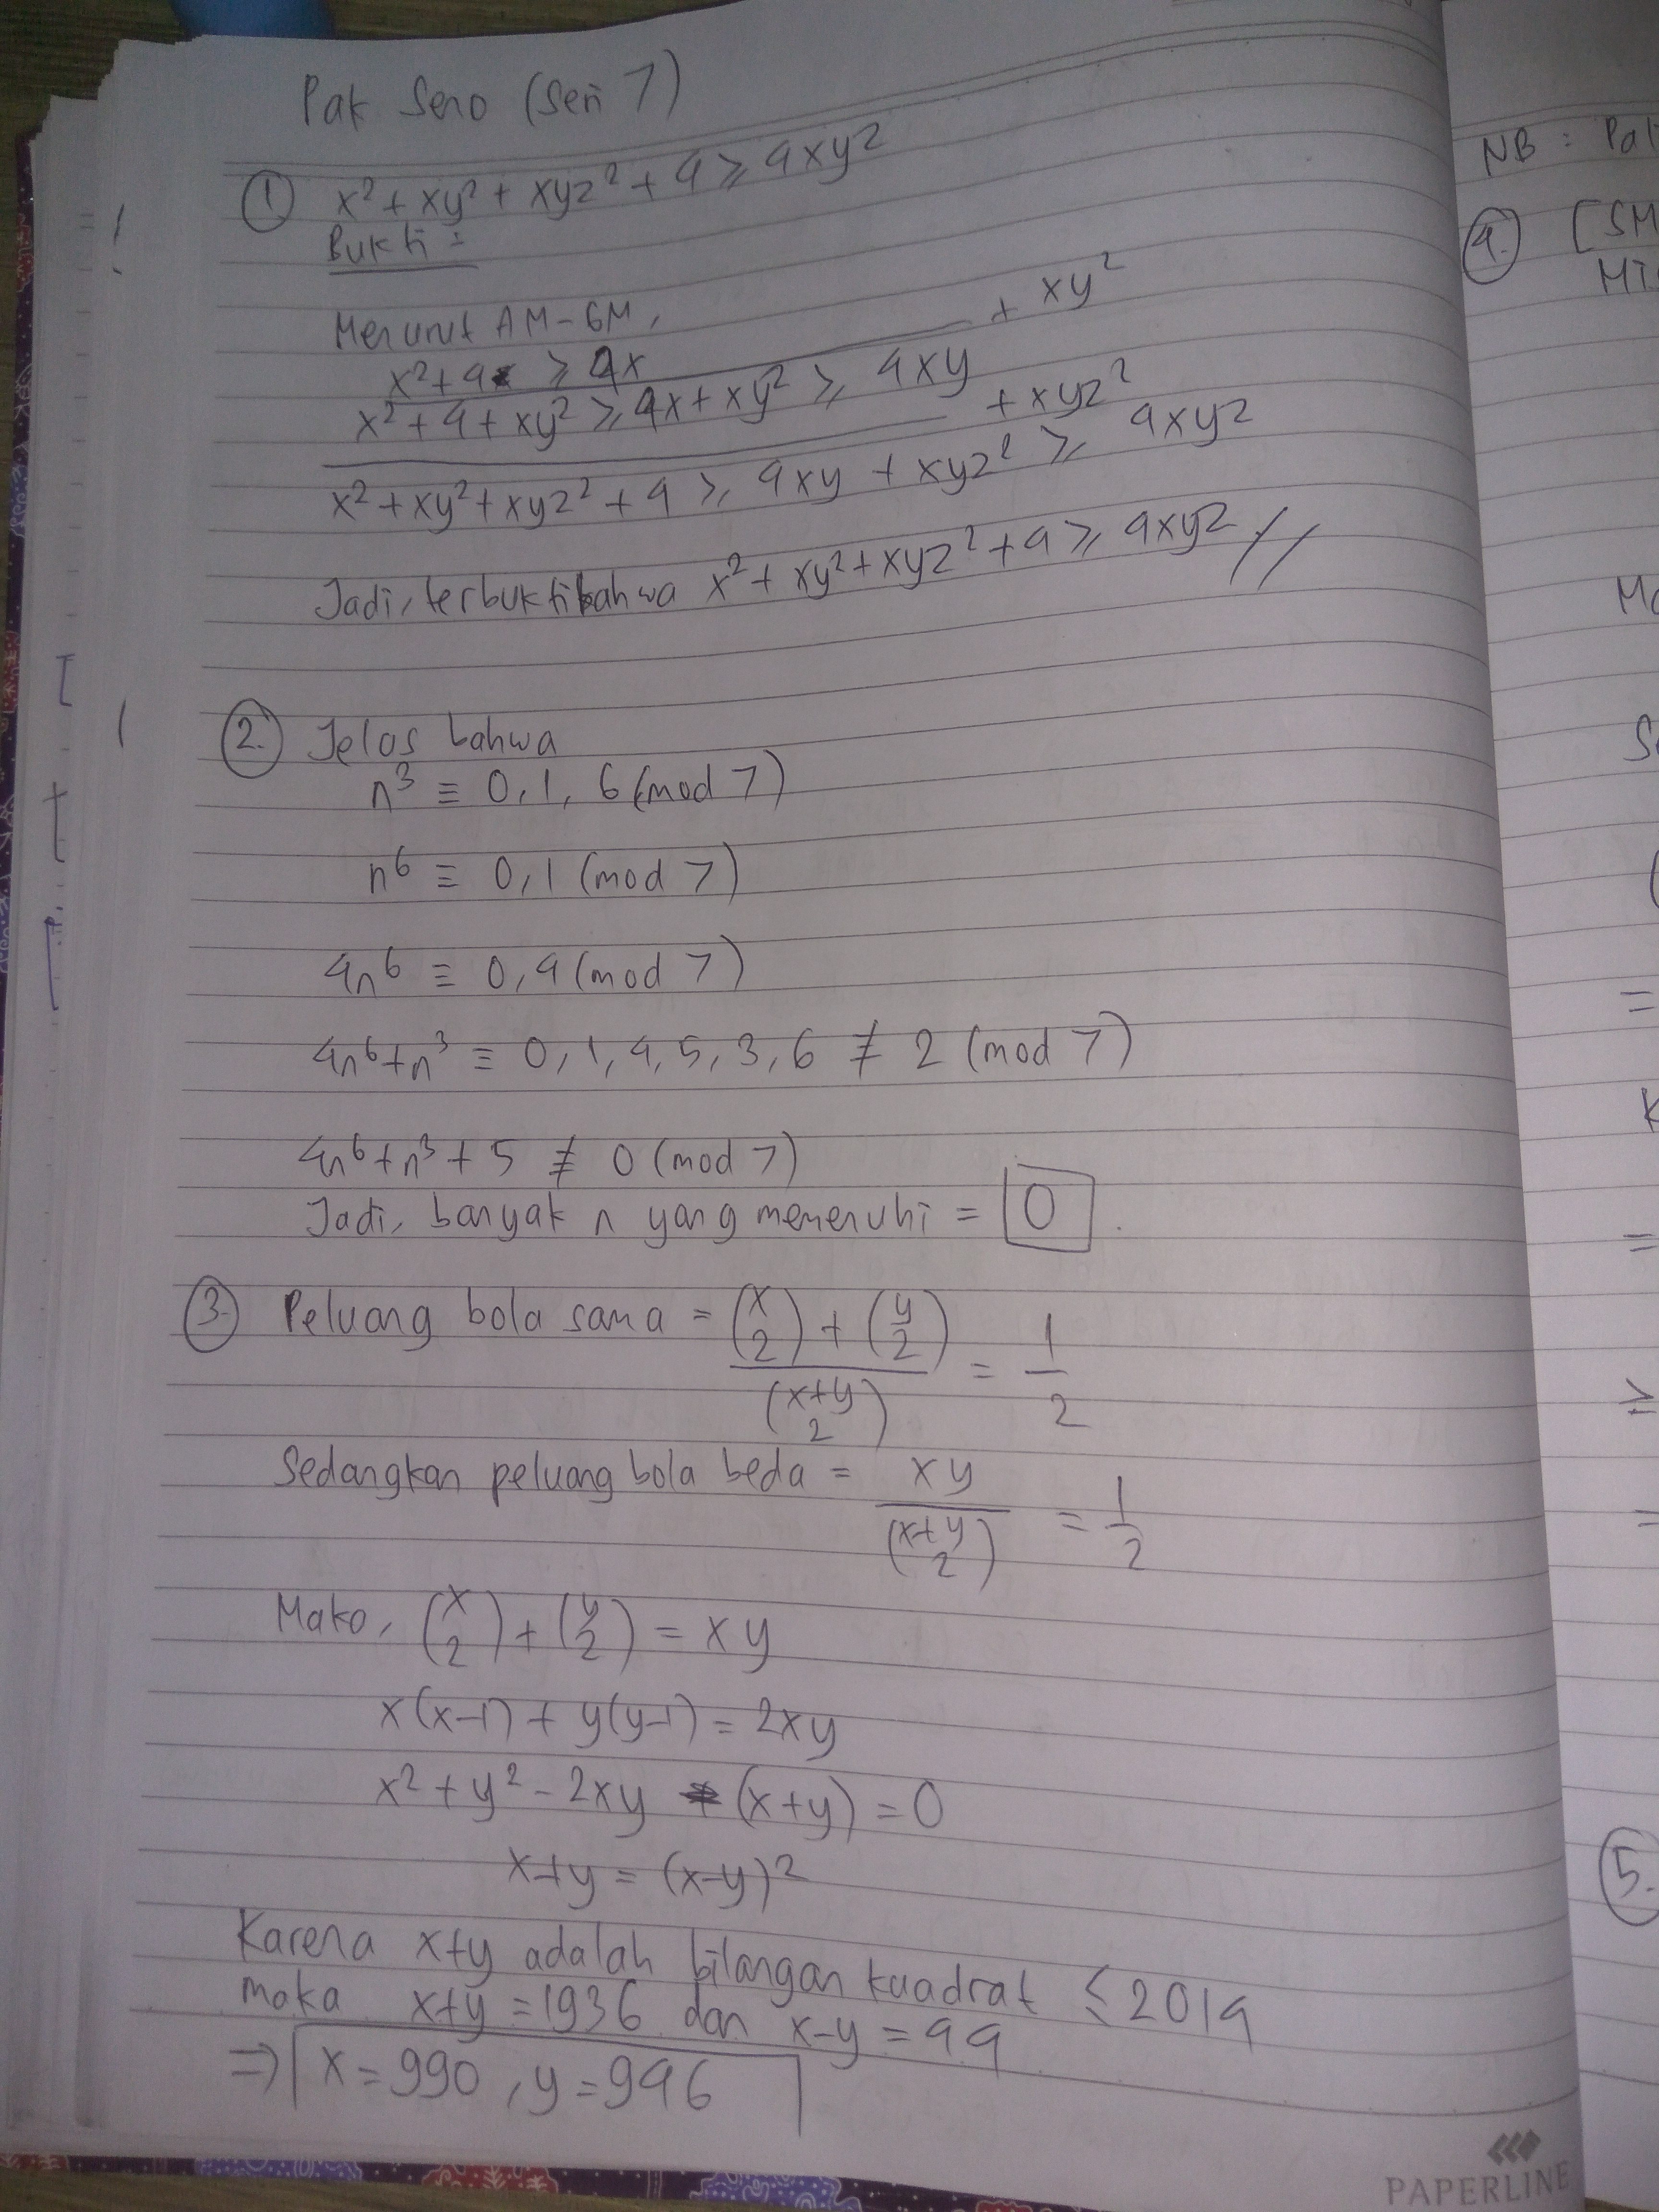 Pak Seno (Seri 7)
① x² + xy² + xyz² + 4 ≥ 4xyz
Bukti :
Menurut AM-GM,
x² + 4 ≥ 4x
+ xy²
x² + 4 + xy² ≥ 4x + xy² ≥ 4xy
+ xyz²
x² + xy² + xyz² + 4 ≥ 4xy + xyz² ≥ 4xyz
Jadi, terbukti bahwa x² + xy² + xyz² + 4 ≥ 4xyz //
2. Jelas bahwa
n³ ≡ 0, 1, 6 (mod 7)
n⁶ ≡ 0, 1 (mod 7)
4n⁶ ≡ 0, 4 (mod 7)
4n⁶ + n³ ≡ 0, 1, 4, 5, 3, 6 ≢ 2 (mod 7)
4n⁶ + n³ + 5 ≢ 0 (mod 7)
Jadi, banyak n yang memenuhi = 0.
3. Peluang bola sama = ((x 2) + (y 2)) / (x+y 2) = 1/2
Sedangkan peluang bola beda = xy / (x+y 2) = 1/2
Maka, (x 2) + (y 2) = xy
x(x-1) + y(y-1) = 2xy
x² + y² - 2xy - (x+y) = 0
x+y = (x-y)²
Karena x+y adalah bilangan kuadrat ≤ 2014
maka x+y = 1936 dan x-y = 44
⇒ x = 990, y = 946
NB :
4. [SM
5.
PAPERLINE